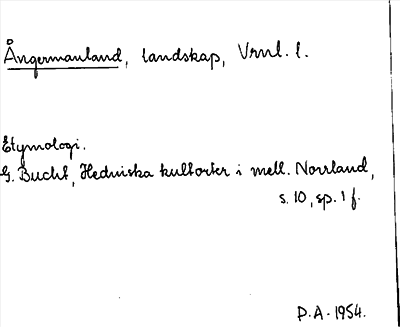 Ångermanland, landskap, Vrnl. l.
Etymologi.
G. Bucht, Hedniska kultorter i mell. Norrland,
s. 10, sp. 1 f.
P.A. 1954.